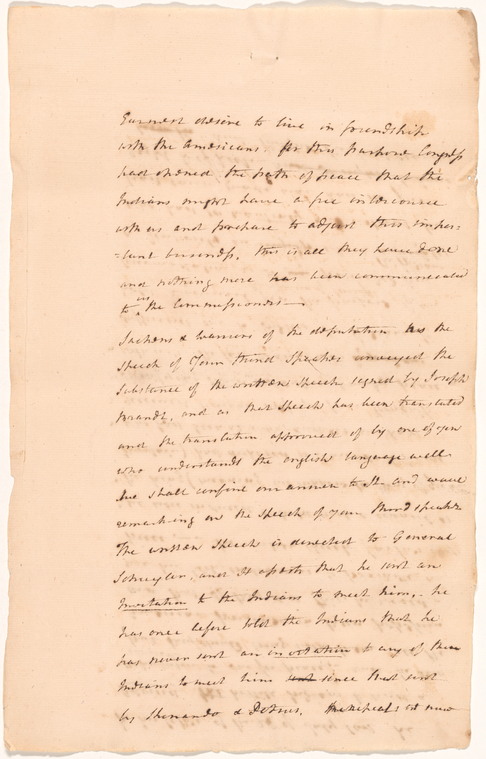 Earnest desire to live in friendship
with the Americans. for this purpose Congress
had opened the path of peace that the
Indians might have a free intercourse
with us and purchase to adjust this impor=
=tant business, this is all they have done
and nothing more has been communicated
to us, the Commissioners —
Sachems & Warriors of the deputation As the
Speech of Your third Speaker conveyed the
Substance of the written Speech signed by Joseph
Brandt, and as that Speech has been translated
and the translation approved of by one of you
who understands the english language well
We shall confine our answer to It and wave
remarking on the Speech of your third speaker
The written Speech is directed to General
Schuyler, and It asserts that he sent an
Invitation to the Indians to meet him, - he
has once before told the Indians that he
has never sent an invitation to any of them
Indians to meet him since that sent
by Skenando & Petrus. he repeats it now